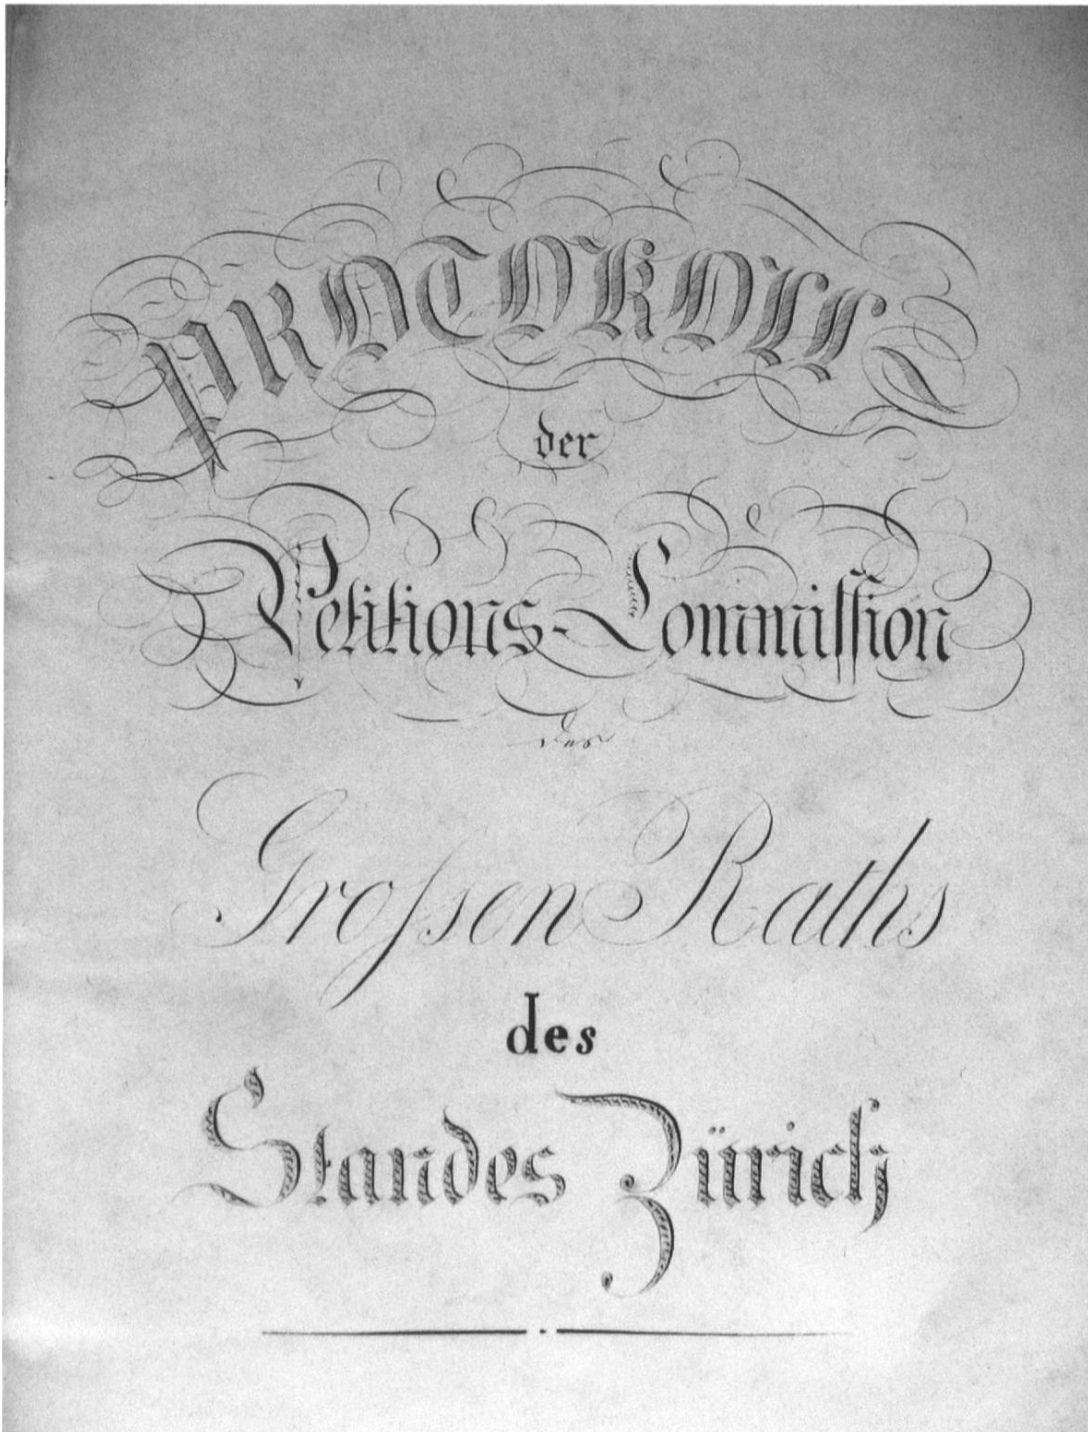 PROTOKOLL
der
Petitions-Commission
des
Grossen Raths
des
Standes Zürich